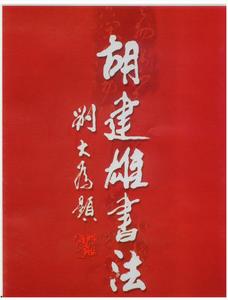 胡建雄书法
刘大为题